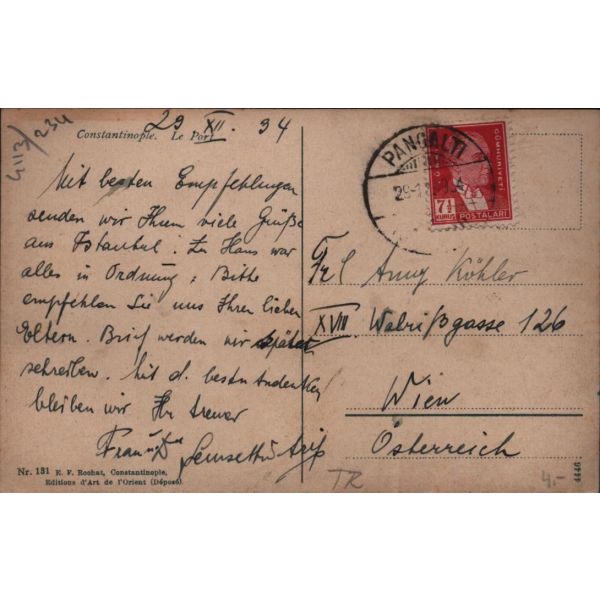 4113/234
29 XII. 34
Constantinople. Le Port
Mit besten Empfehlungen
senden wir Ihnen viele Grüße
aus Istanbul. Zu Haus war
alles in Ordnung; Bitte
empfehlen Sie uns Ihren lieben
Eltern. Brief werden wir später
schreiben. Mit d. besten Andenken
bleiben wir Ihr treuer
Nr. 131 E. F. Rochat, Constantinople,
Editions d'Art de l'Orient (Déposé)
PANGALTI
29-1
CUMHURIYETI
7½
KURUŞ POSTALARI
Frl Anny Köhler
XVIII Walrißgasse 126
Wien
Österreich
TR
4.-
4446